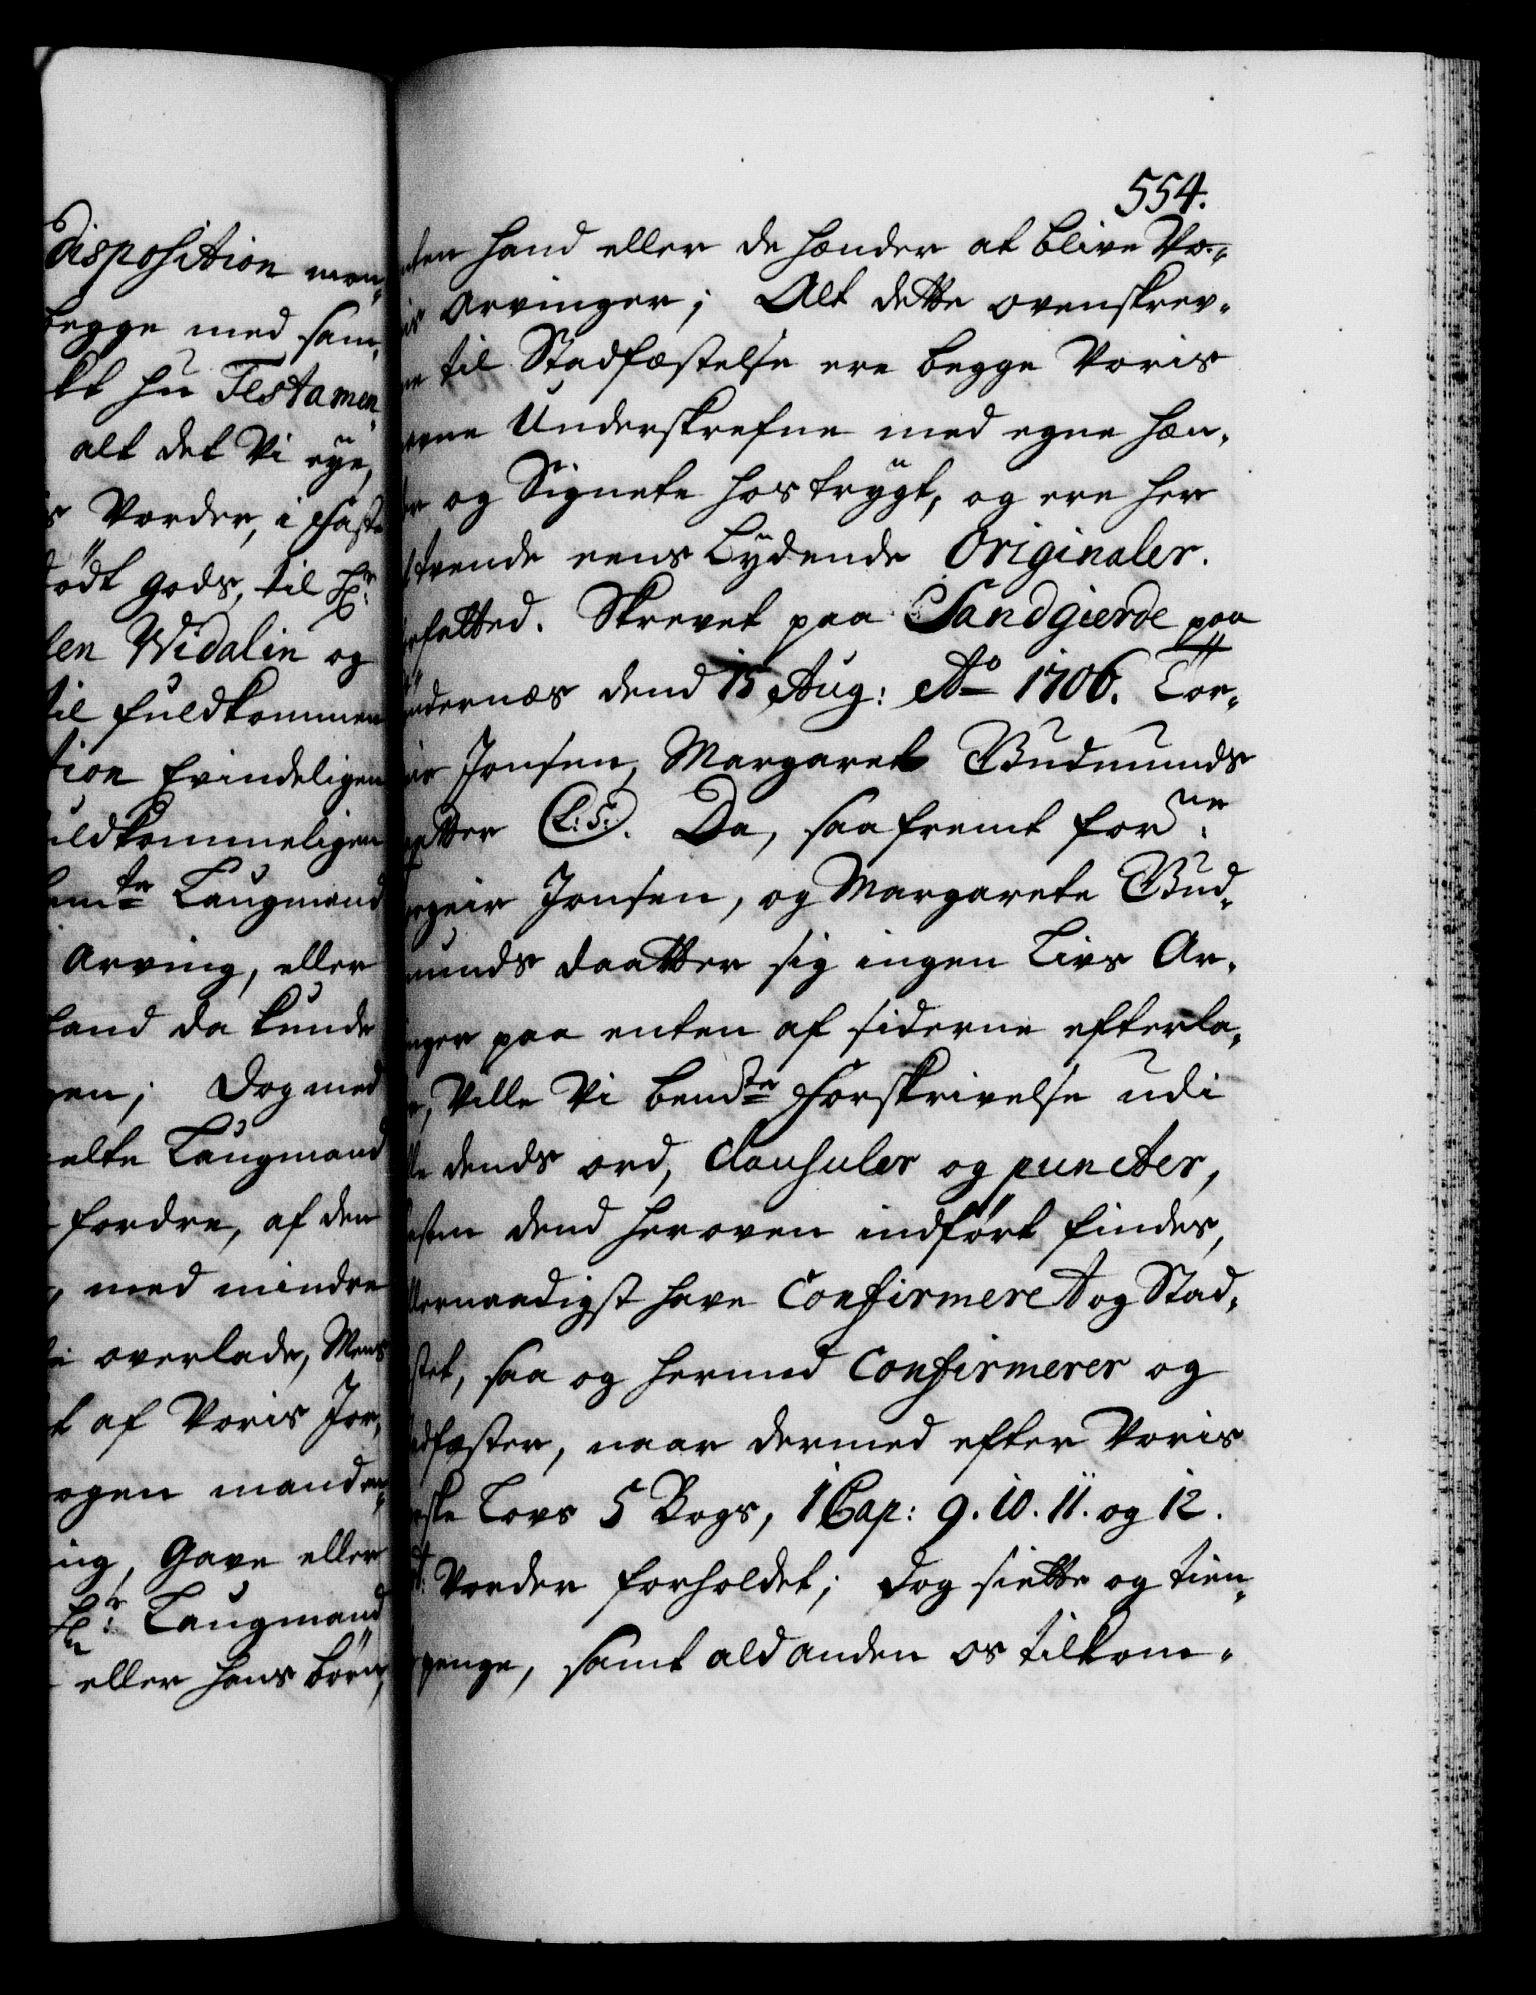 disposition man„
begge med sam„
kt hu Testamen„
alt det Vi eye,
s Vorder, i Faste
ödt gods, til Hr:
len Widalin og
til fuldkommen
tion Evindeligen
uldkommeligen
emte Laugmand
Arving, eller
hand da kunde
gen; Dog med
elte Laugmand
fordre, af den
, med mindre
overlade, Mens
t af Voris Jor„
ogen manden„
ing, Gave eller
Hr: Laugmand
eller hans börn,
554.
nten hand eller de hænder at blive Vo„
is Arvinger; Alt dette ovenskrev„
ne til Stadfæstelse ere begge Voris
erne Underskrefne med egne hæn„
er og Signete hos trygt, og ere her
trende eens Lydende Originaler.
efatted. Skrevet paa Sandgierde paa
ndernæs dend 15 Aug: Ao 1706. Tor„
eir Jonsen, Margaret Gudmunds
aatter (L:S:). Da, saafremt forne:
orgeir Jonsen, og Margarete Gud„
munds daatter sig ingen Livs Ar„
inger paa enten af siderne efterla„
e, Ville Vi bemdte Forskrivelse udi
lle dends ord, Clausuler og puncter,
esom dend heroven indført findes,
llernaadigst have Confirmeret og Stad„
stet, saa og hermed Confirmerer og
adfæster, naar dermed efter Voris
rske Lovs 5 Bogs, 1 Cap: 9. 10. 11. og 12.
t: Vorder forholdet; Dog siette og tien„
penge, samt ald anden os tilkom„